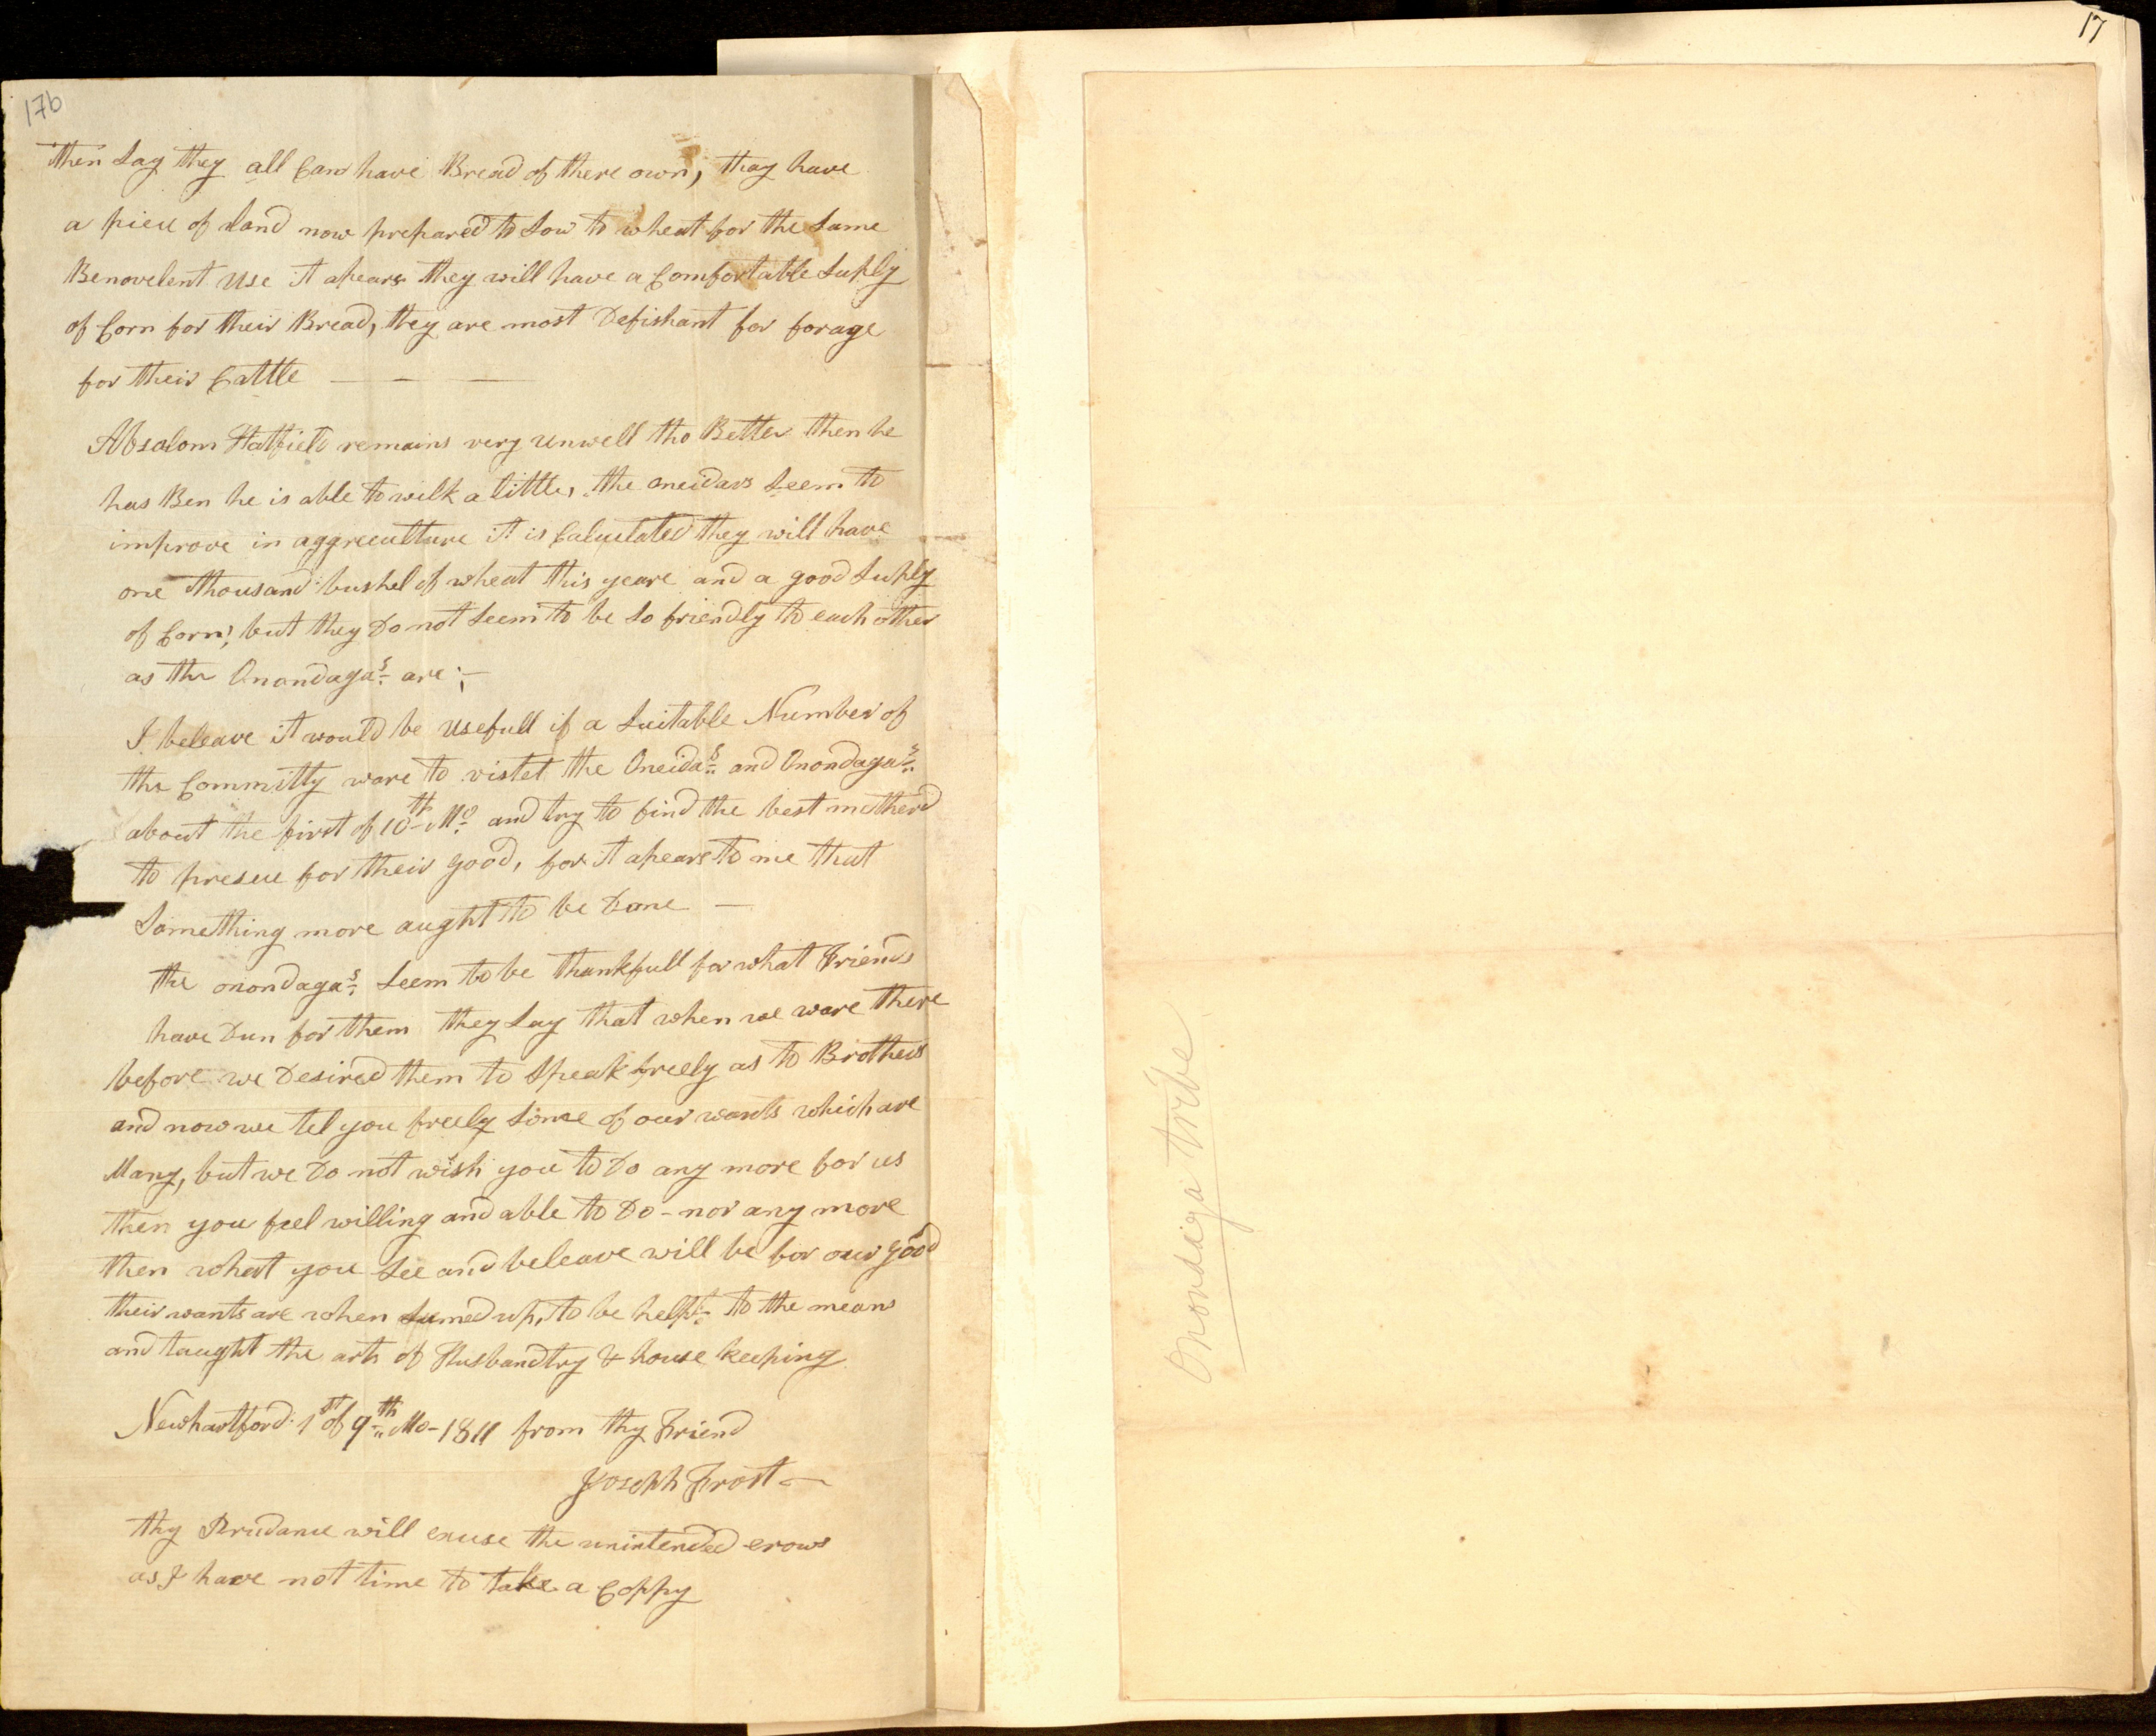 17b
then Say they all Can have Bread of there own, thay have
a piece of land now prepared to Sow to wheat for the Same
Benovelent use it apears they will have a Comfortable Suply
of Corn for their Bread, they are most Defishant for forage
for their Cattle — — —
Absalom Hatfield remains very unwell tho Better then he
has Ben he is able to walk a little, the oneidars Seem to
improve in aggreculture it is Calculated they will have
one thousand bushel of wheat this yeare and a good Suply
of Corn, but they Do not Seem to be So friendly to each other
as the Onondagas are ;—
I beleave it would be usefull if a Suitable Number of
the Committy ware to vistet the Oneidas and Onondagas
about the first of 10th Mo and try to find the best metherd
to presue for their good, for it apears to me that
Something more aught to be Done —
the onondagas Seem to be thankfull for what Friends
have Dun for them they Say that when we ware there
before we Desired them to Speak freely as to Brothers
and now we tel you freely Some of our wants which are
Many, but we Do not wish you to Do any more for us
then you feel willing and able to Do - nor any more
then what you See and beleave will be for our good
their wants are when Sumed up, to be helpt to the means
and taught the arts of Husbandtry & house keeping
Newhartford 1st of 9th Mo - 1811 from thy Friend
Joseph Frost
thy Prudance will exuse the unintended erows
as I have not time to take a Coppy
17
Onondaga tribe